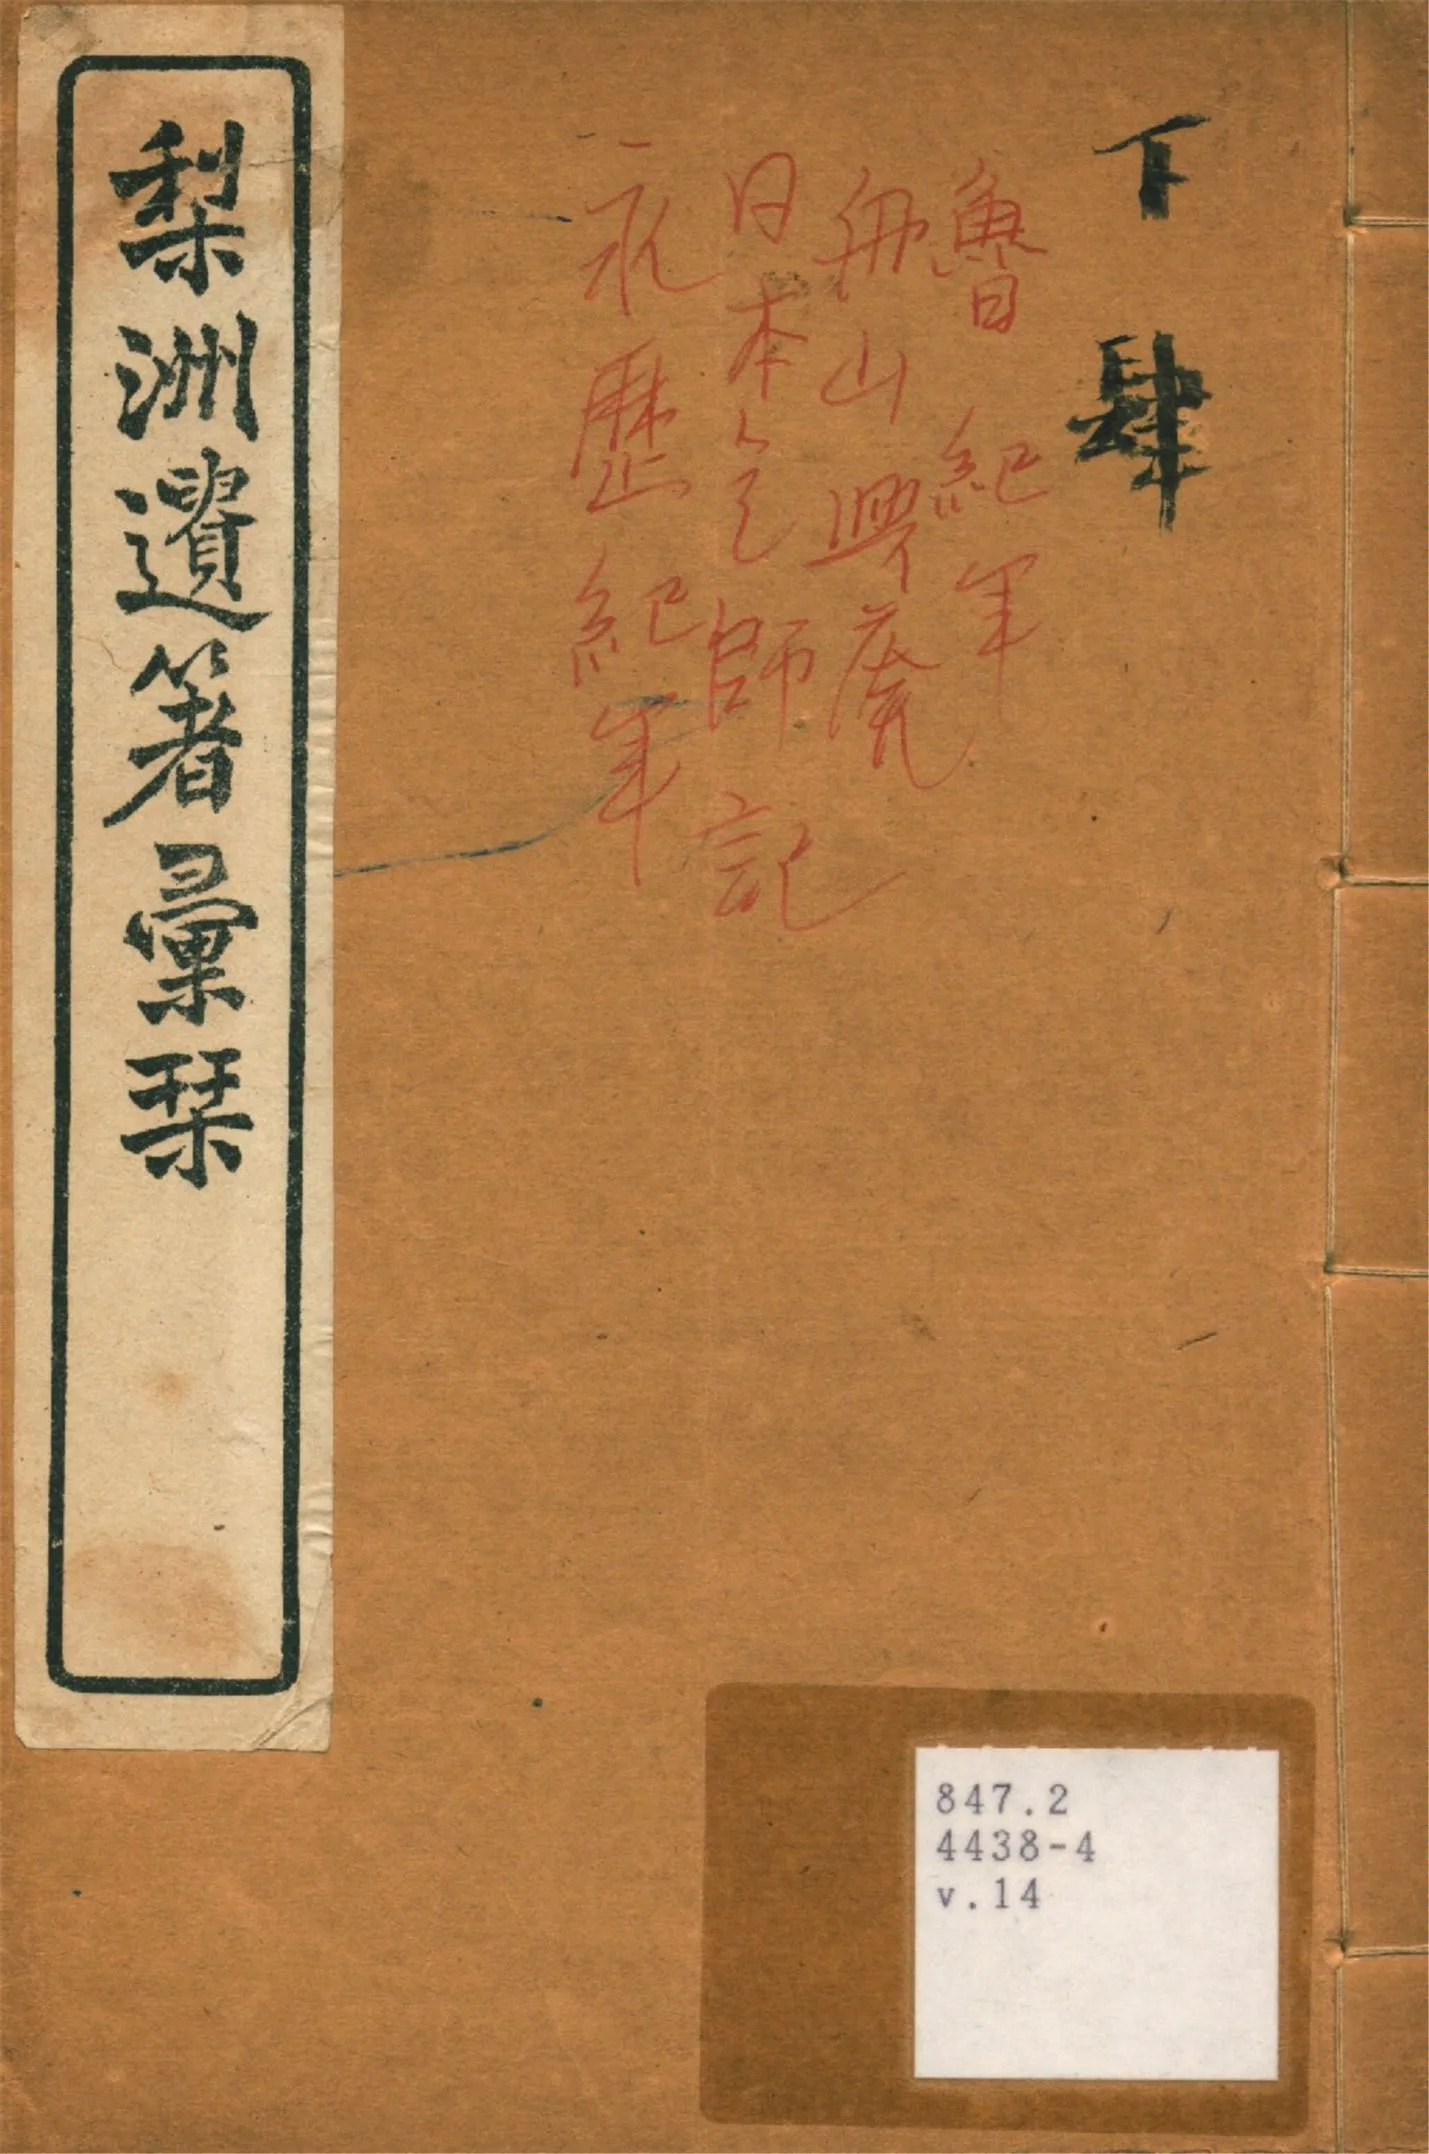 下 肆
魯 紀年
舟山興廢
日本乞師記
永歷紀年
梨洲遺箸彙栞
847.2
4438-4
v.14